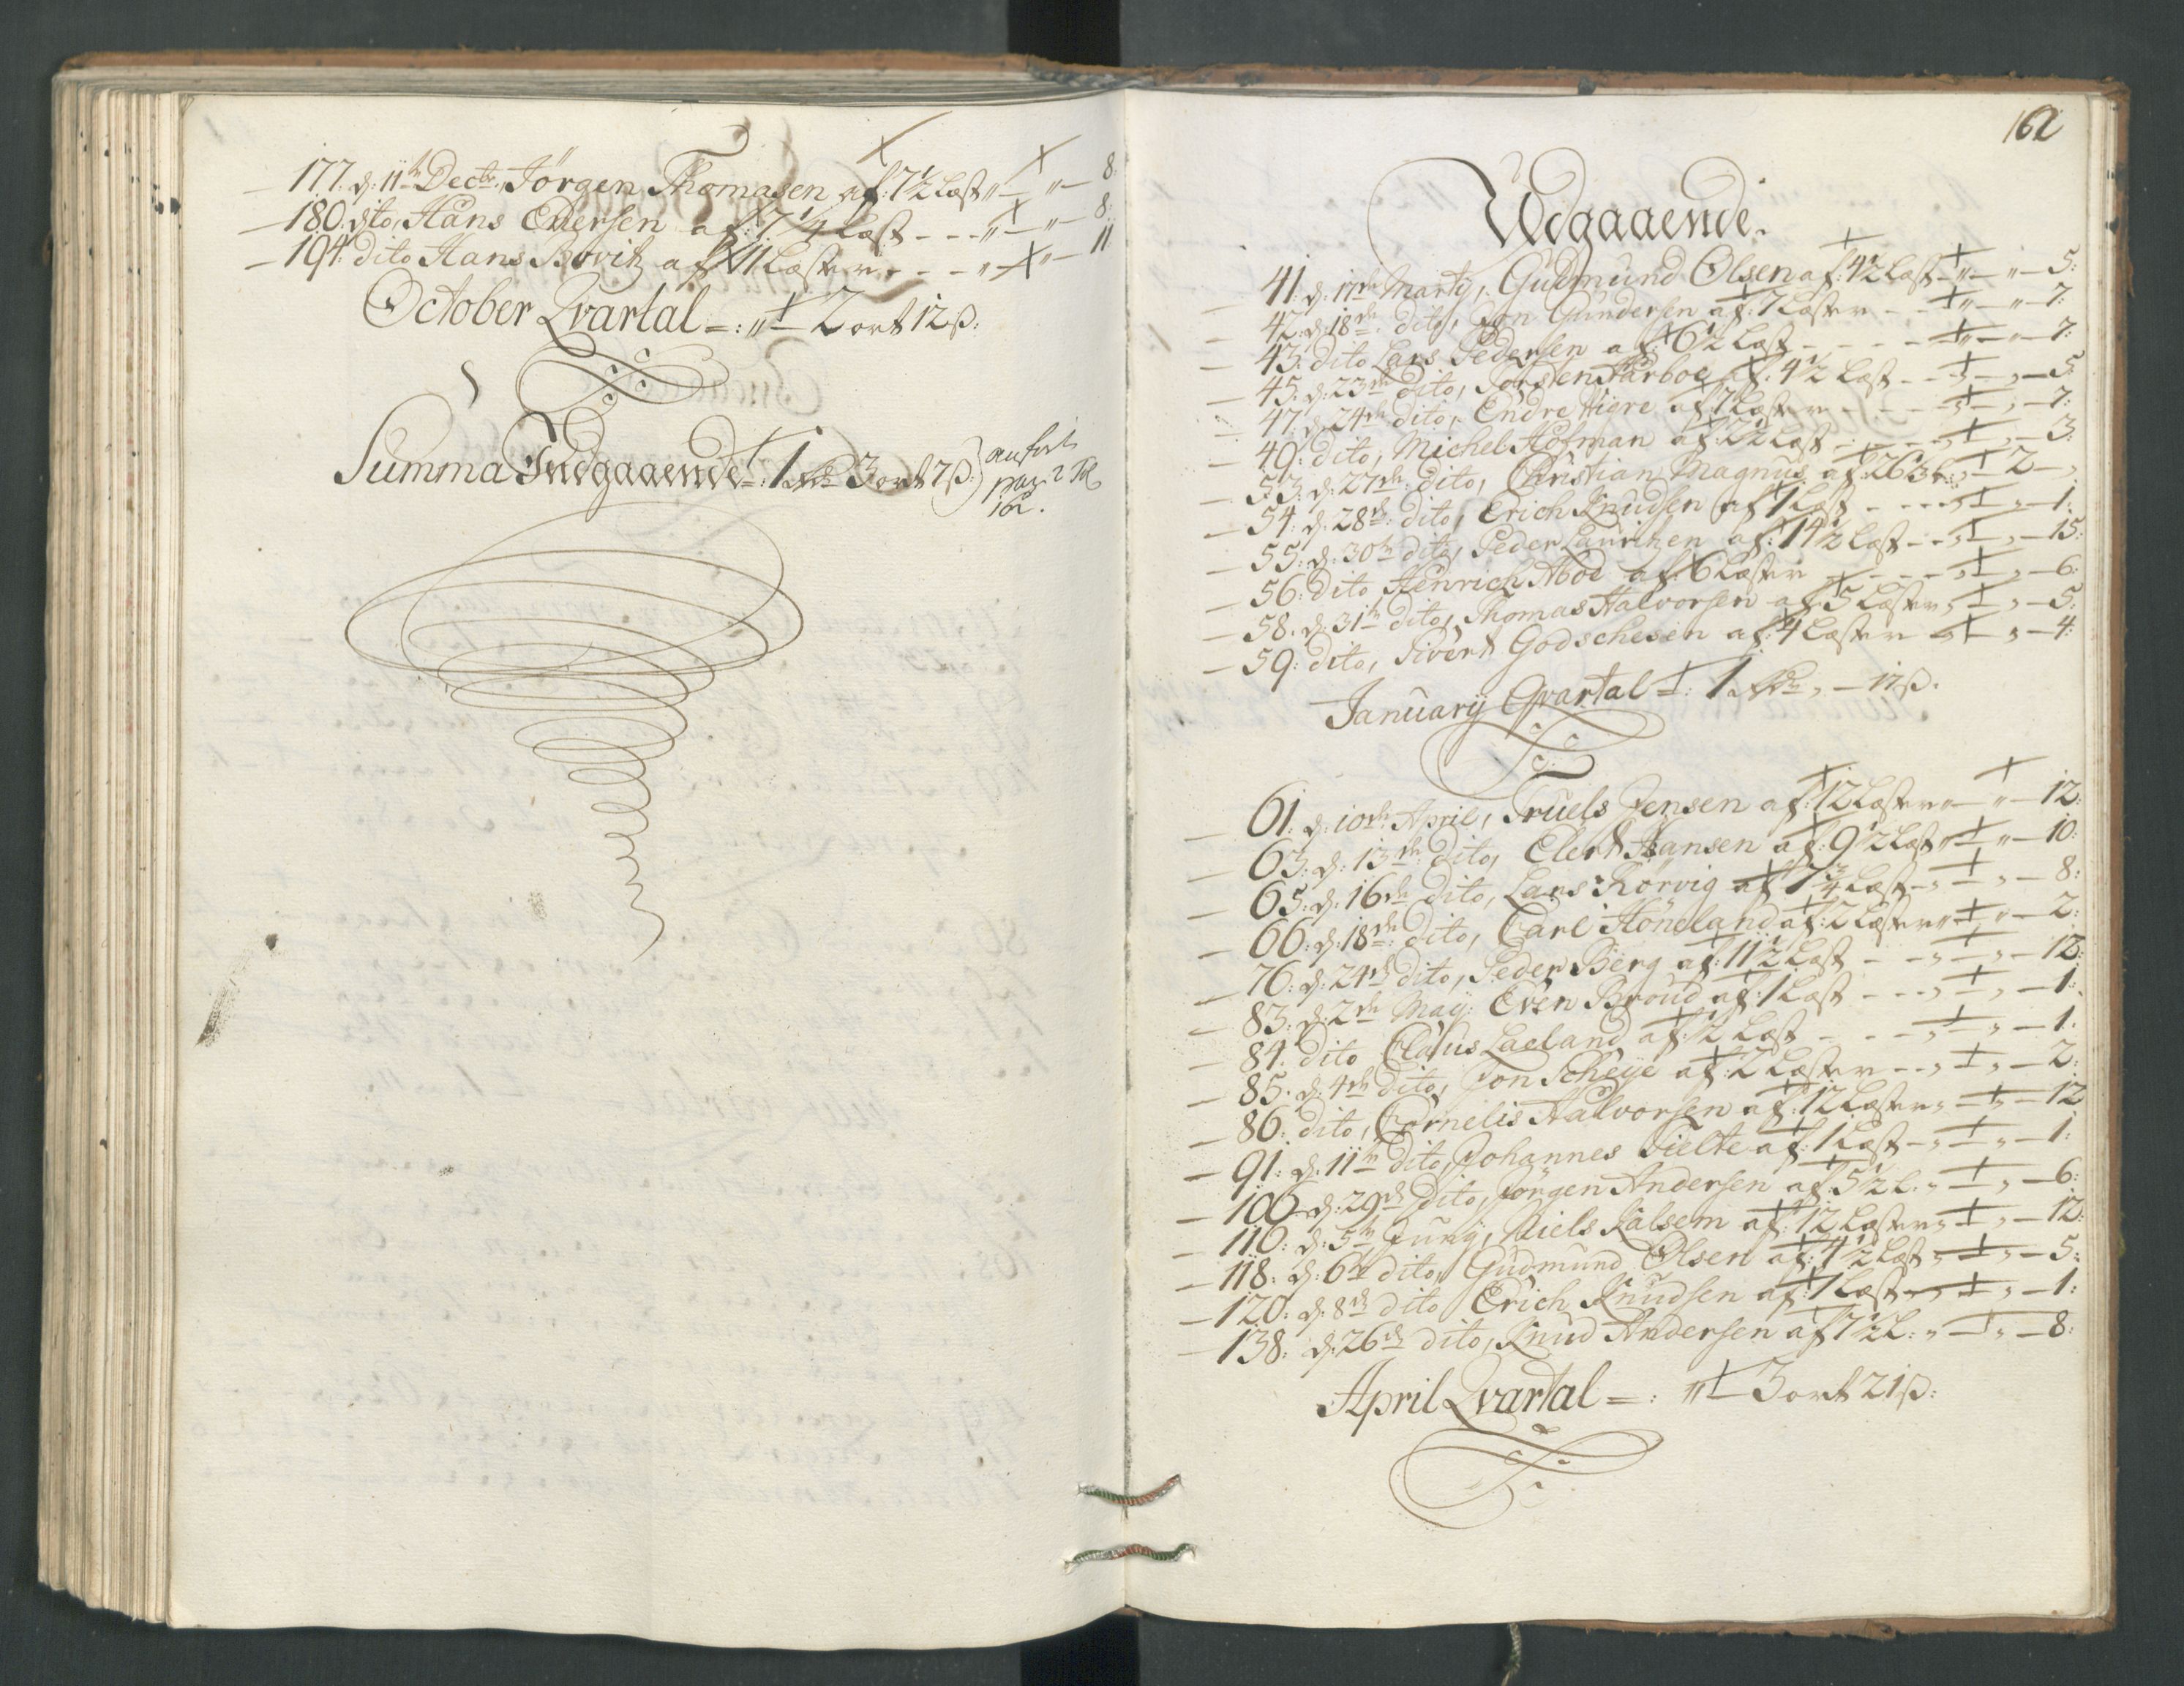 — 177. d: 11th Decbr, Jörgen Thomasen af: 7½ Læst „ — „ — 8.
— 180. dto, Hans Endersen af: 7¼ Læst - - - „ — „ — 8.
— 194. dito Hans Bovitz af 11 Læster - - - „ — „ — 11
October Qvartal =: „ — 2 ort 12 ß:
Summa Indgaaende =: 1 Rdr 3 ort 7 ß.
anfört
pag:
162.
162
Udgaaende.
— 41: d: 17de Marty, Gudmund Olsen af: 4½ Læst — „ — „ — 5:
— 42: d: 18de dito, Jon Gundersen af: 7 Læster - - — „ — „ — 7:
— 43: dito Lars Pedersen af: 6½ Læst - - - - — „ — „ — 7:
— 45: d: 23de dito, Torsten Farboe af: 4½ Læst - - „ — „ — 5:
— 47: d: 24de dito, Endre Higre af: 7 Læster - - - - „ — „ — 7:
— 49: dito, Michel Hofman af: 2½ Læst - - - - „ — „ — 3:
— 53: d: 27de dito, Christian Magnus af: 26¾ L: „ — 2 — „
— 54: d: 28de dito, Erich Knudsen af 1 Læst - - - - „ — „ — 1:
— 55: d: 30te dito, Peder Lauritzen af: 14½ Læst - - „ — „ — 15:
— 56: dito Henrich Aboe af: 6 Læster - - - - „ — „ — 6:
— 58: d: 31te dito, Thomas Halvorsen af: 5 Læster „ — „ — 5:
— 59: dito, Sivert Godschesen af: 4 Læster - „ — „ — 4:
January Qvartal =: 1 Rdr „ — 17 ß.
— 61: d: 10de April, Truels Jensen af: 12 Læster „ — „ — 12:
— 63: d: 13de dito, Elert Hansen af: 9½ Læst „ — „ — 10:
— 65: d: 16de dito, Lars Rörvig af 7¾ Læst - „ — „ — 8:
— 66: d: 18de dito, Carl Höneland af: 2 Læster „ — „ — 2:
— 76: d: 24de dito, Peder Berg af: 11½ Læst - - „ — „ — 12:
— 83: d: 2de May: Even Broud af: 1 Læst - - - „ — „ — 1:
— 84: dito Claus Laeland af: ½ Læst - - - „ — „ — 1:
— 85: d: 4de dito, Jon Scheye af: 2 Læster - - „ — „ — 2:
— 86: dito, Cornelis Halvorsen af: 12 Læster „ — „ — 12
— 91: d: 11te dito, Johannes Tielte af: 1 Læst - „ — „ — 1:
— 106 d: 29de dito, Jörgen Andersen af: 5½ L: „ — „ — 6:
— 116: d: 5te Juny, Niels Kalsem af: 12 Læster „ — „ — 12:
— 118: d: 6te dito, Gudmund Olsen af: 4½ Læst „ — „ — 5:
— 120: d: 8de dito Erich Knudsen af: 1 Læst - „ — „ — 1:
— 138: d: 26de dito, Knud Andersen af 7½ L: „ — „ — 8:
April Qvartal =: „ — 3 ort 21 ß: